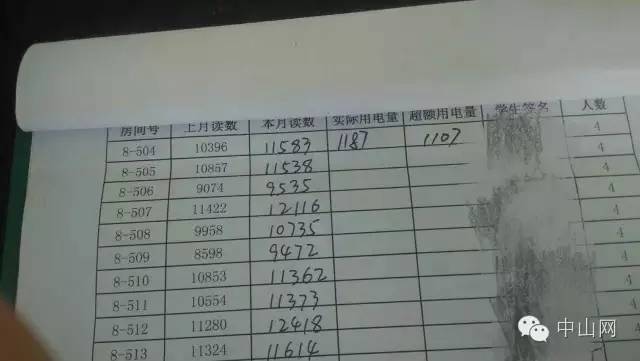 房间号 上月读数 本月读数 实际用电量 超额用电量 学生签名 人数
8-504 10396 11583 1187 1107 4
8-505 10857 11538 4
8-506 9074 9535 4
8-507 11422 12116 4
8-508 9958 10735 4
8-509 8598 9472 4
8-510 10853 11362 4
8-511 10554 11373 4
8-512 11280 12418 4
8-513 11324 11614 4
中山网